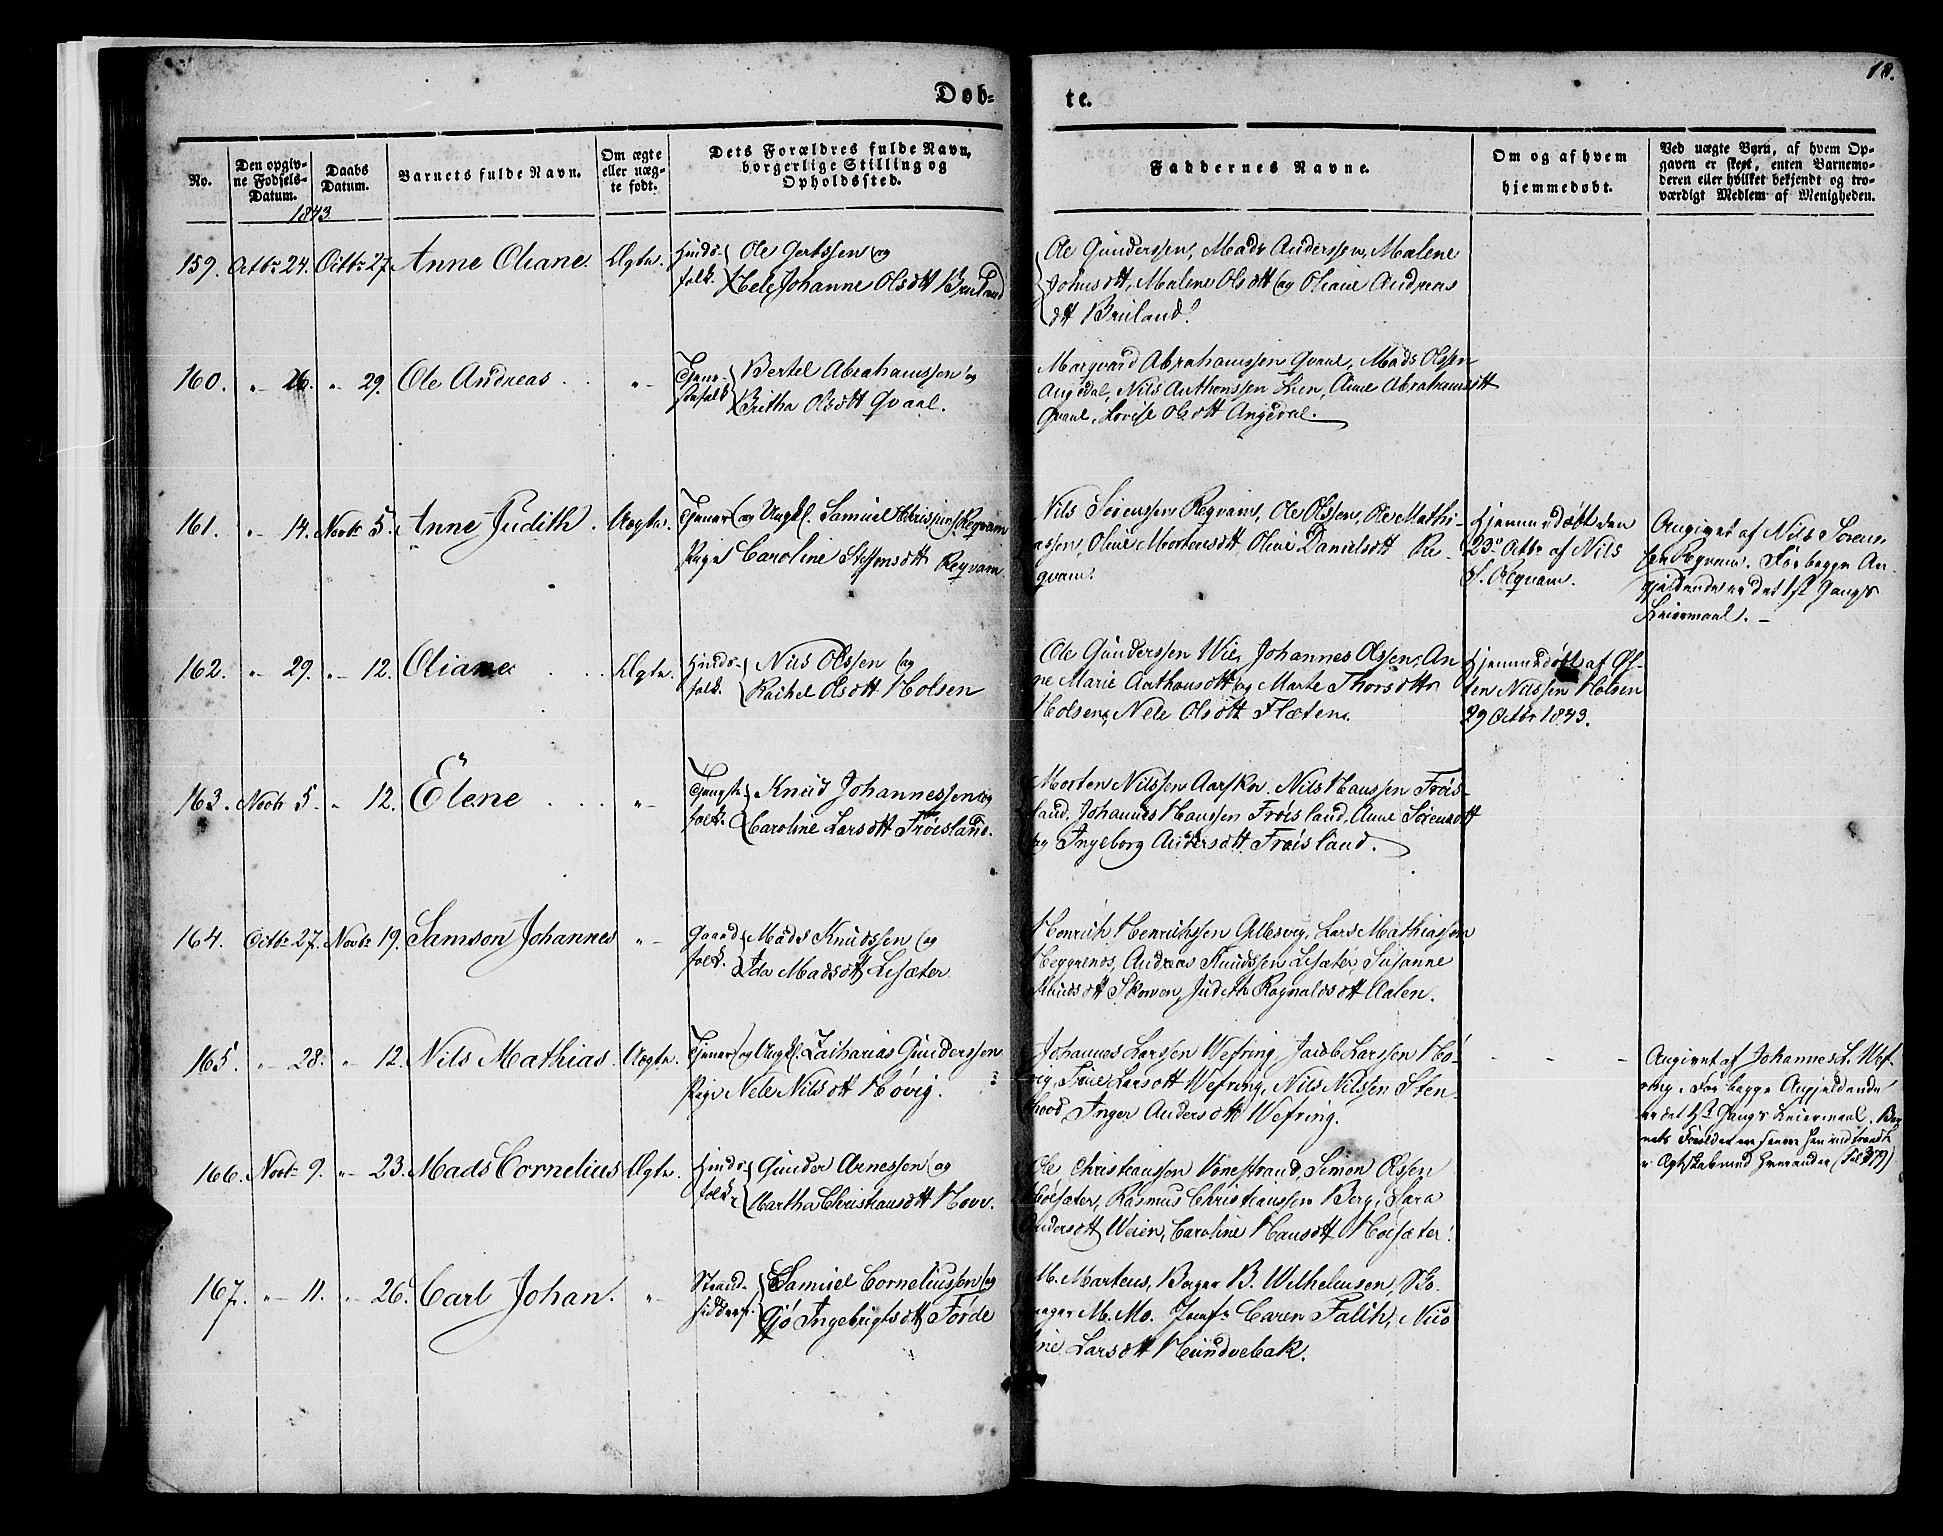 Døb-
te.
18.
No.
Den opgiv-
ne Fødsels-
Datum.
Daabs
Datum.
Barnets fulde Navn.
Om ægte
eller uæg-
te født.
Dets Forældres fulde Navn,
borgerlige Stilling og
Opholdssted.
Faddernes Navne.
Om og af hvem
hjemmedøbt.
Ved uægte Børn, af hvem Op-
gaven er skeet, enten Barnemo-
deren eller hvilket bekjendt og tro-
værdigt Medlem af Menigheden.
1843
159. Octbr 24. Octbr 27. Anne Oliane. Ægte. Huus- Ole Gertssen og
folk. Nele Johanne Olsdtt Bruland
Ole Gunderssen, Mads Anderssen, Malene
Johnsdtt, Malene Olsdtt og Oliane Andreas
dtt Bruland.
160. " 26. " 29. Ole Andreas " Bertel Abrahamssen og
Britha Olsdtt Qvaal.
Marqvard Abrahamssen Qvaal, Mads Olssen
Angedal, Nils Anthonssen Lien, Anne Abrahamsdtt
Qvaal, Lovise Olsdtt Angedal.
161. " 14. Novbr 5. Anne Judith. Uægte. Tjener og Ungkl. Samuel Chrispins. Reqvam
Pige Caroline Steffensdtt Reqvam
Nils Sørenssen Reqvam, Ole Olssen, Ole Mathi-
assen, Oline Mortensdtt, Oline Danielsdtt Re-
qvam.
Hjemmedøbt den
23de Octbr af Nils
S. Reqvam.
Angivet af Nils Søren-
sen Reqvam. For begge An-
gjeldende er det 1ste Gangs
Leiermaal.
162. " 29. " 12. Oliane Ægte. Huus- Nils Olssen og
folk. Rachel Olsdtt Holsen
Ole Gunderssen Wie, Johannes Olssen, An
ne Marie Anthonsdtt og Marte Thorsdtt
Holsen, Nele Olsdtt Flæten.
Hjemmedøbt af
Nilssen Holsen
29 Octbr 1843.
163. Novbr 5. " 12. Elene " Knud Johannessen og
folk. Caroline Larsdtt Frøisland.
Morten Nilssen Aarskov. Nils Hanssen Frøis-
land, Johannes Hanssen Frøisland, Anne Sørensdtt
og Ingeborg Andersdtt Frøisland.
164. Octbr 27. Novbr 19. Samson Johannes " Gaard Mads Knudssen og
folk. Ida Madsdtt Lisæter
Henrich Henrichssen Gilesvig, Lars Mathiassen
Heggenes, Andreas Knudssen Lisæter, Susanne
Knudsdtt Skoven, Judith Ragnaldsdtt Aalen.
165. " 28. " 12. Nils Mathias. Uægte. Tjener og Ungkl. Zacharias Gunderssen
Pige Nele Nilsdtt Høvig.
Johannes Larssen Wefring, Jacob Larssen Hø-
vig, Trine Larsdtt Wefring, Nils Nilssen Sten-
hoved, Inger Andersdtt Wefring.
Angivet af Johannes L. Wef-
ring. For begge Angjeldende
er det 1ste Gangs Leiermaal. Bar-
nets Forældre ere senere hen indtraadt
i Ægteskab med hverandre (Fol 379)
166. Novbr 9. " 23. Mads Cornelius Ægte. Huus- Gunder Arnessen og
folk. Martha Christiansdtt Hove.
Ole Christianssen Vonestrand, Simon Olssen
Hoisæter, Rasmus Christianssen Berg, Sara
Andersdtt Weien, Caroline Hansdtt Hoisæter.
167. " 11. " 26. Carl Johan. " Strand- Samuel Corneliussen og
siddere. Gjø Ingebrigtsdtt Førde
M. Martens, Bager B. Wilhelmsen, Sko-
mager M. Mo. Jomfr. Caren Falch, Nico
line Larsdtt Hundvebak.